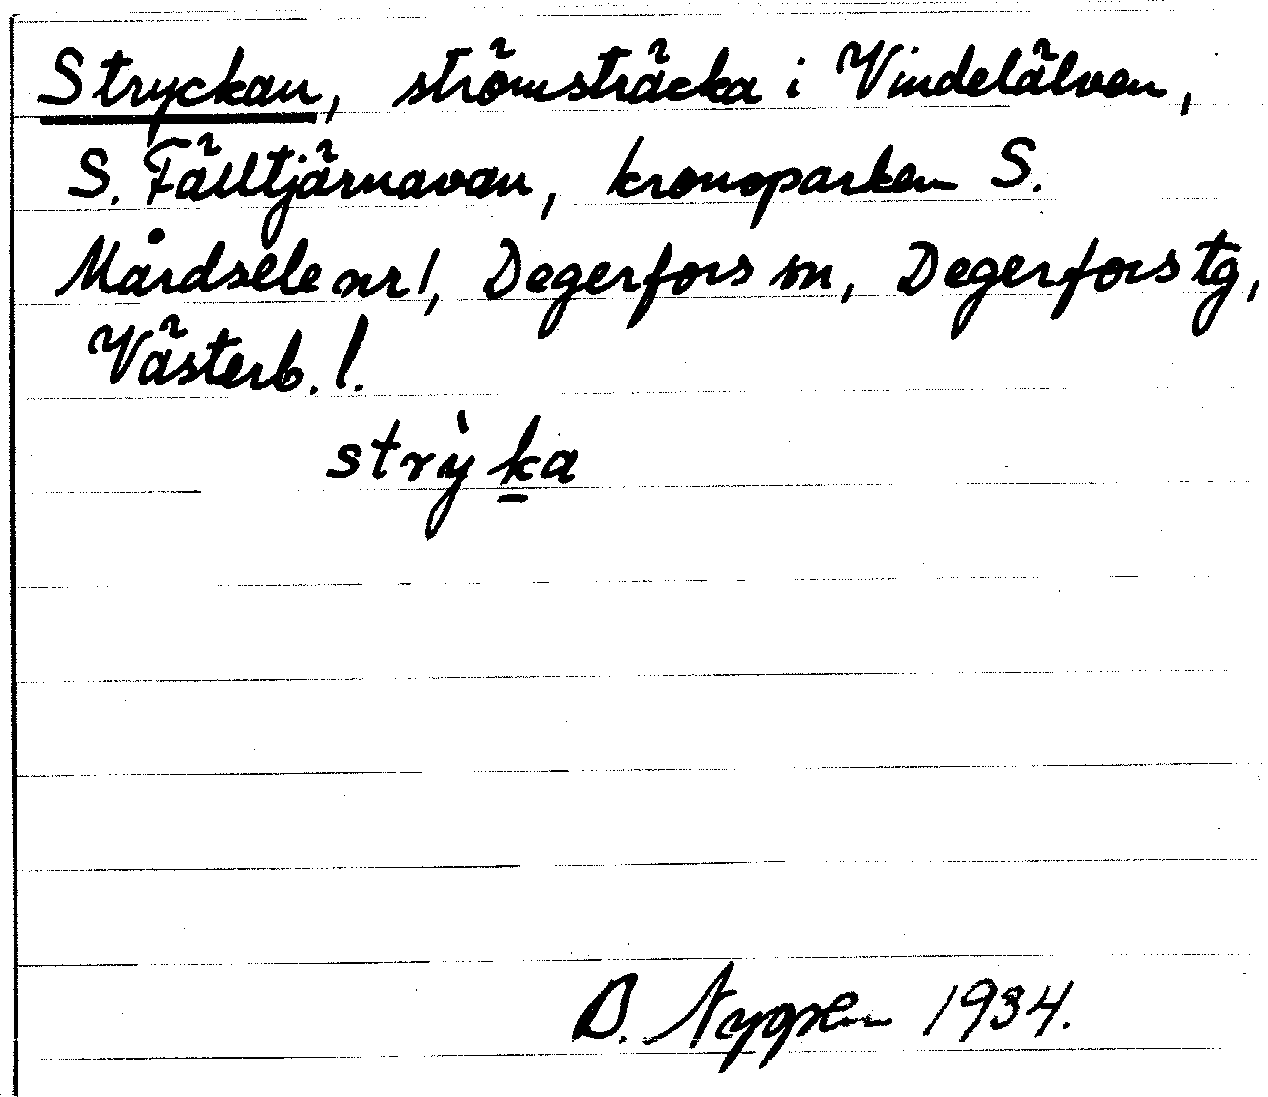 Stryckan, strömsträcka i Vindelälven,
S. Fälltjärnavan, kronoparken S.
Mårdsele nr 1, Degerfors sn, Degerfors tg,
Västerb. l.
strỳk̲a
B. Nygren 1934.